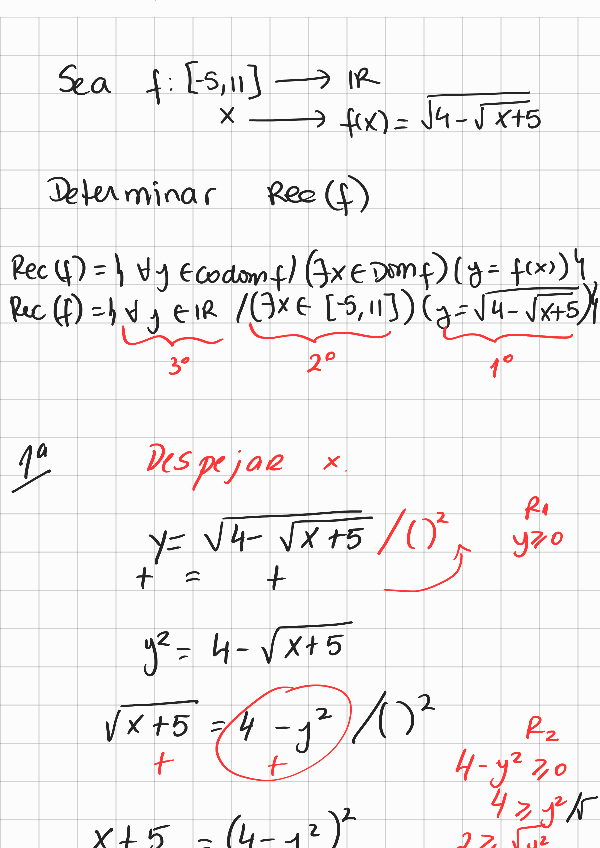 Sea f: [-5,11] → IR
x → f(x) = √(4-√(x+5))
Determinar Rec(f)
Rec(f) = { ∀y ∈ codomf / (∃x ∈ Domf) (y = f(x)) }
Rec(f) = { ∀y ∈ IR / (∃x ∈ [-5,11]) (y = √(4-√(x+5))) }
3º 2º 1º
1ª Despejar x.
y = √(4-√(x+5)) /( )²
+ = +
R₁
y ≥ 0
y² = 4-√(x+5)
√(x+5) = 4-y² /( )²
+ +
R₂
4-y² ≥ 0
4 ≥ y² /√
2 ≥ √y²
x+5 = (4-y²)²